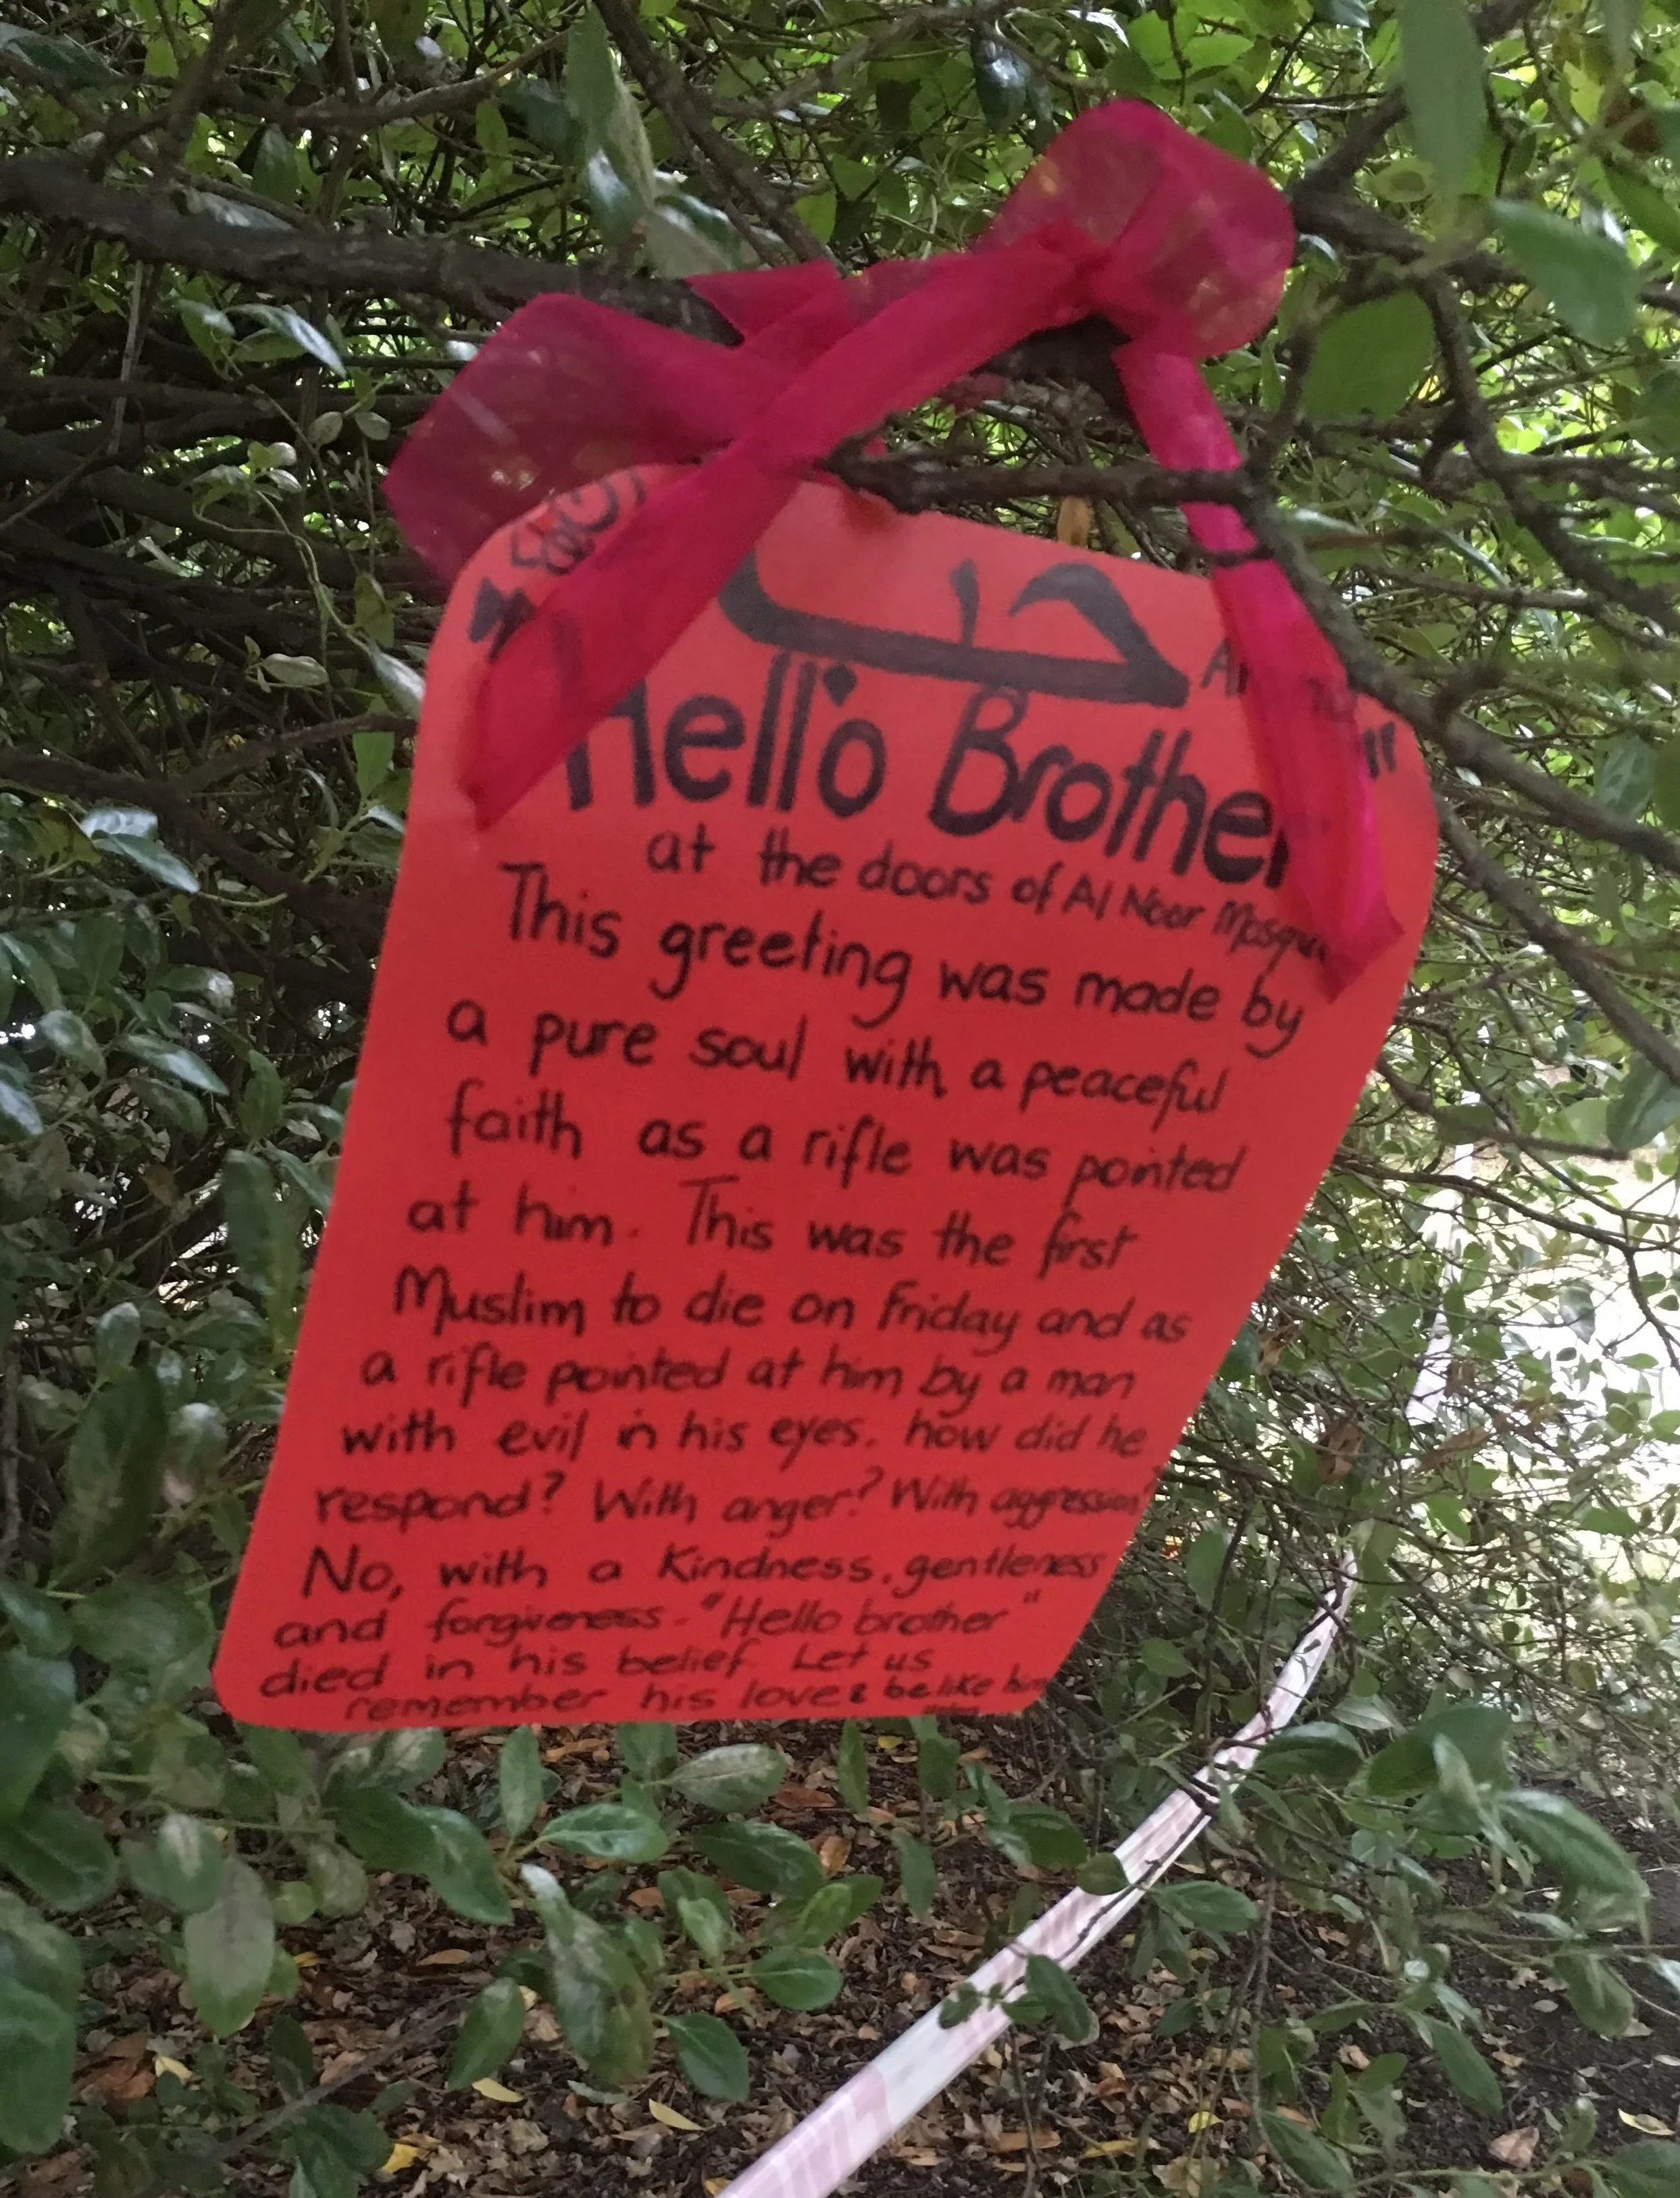 حب
Hello Brother "
at the doors of Al Noor Mosque
This greeting was made by
a pure soul with a peaceful
faith as a rifle was pointed
at him. This was the first
Muslim to die on Friday and as
a rifle pointed at him by a man
with evil in his eyes. how did he
respond? With anger? With aggression?
No, with a kindness, gentleness
and forgiveness - "Hello brother"
died in his belief. Let us
remember his love & be like him